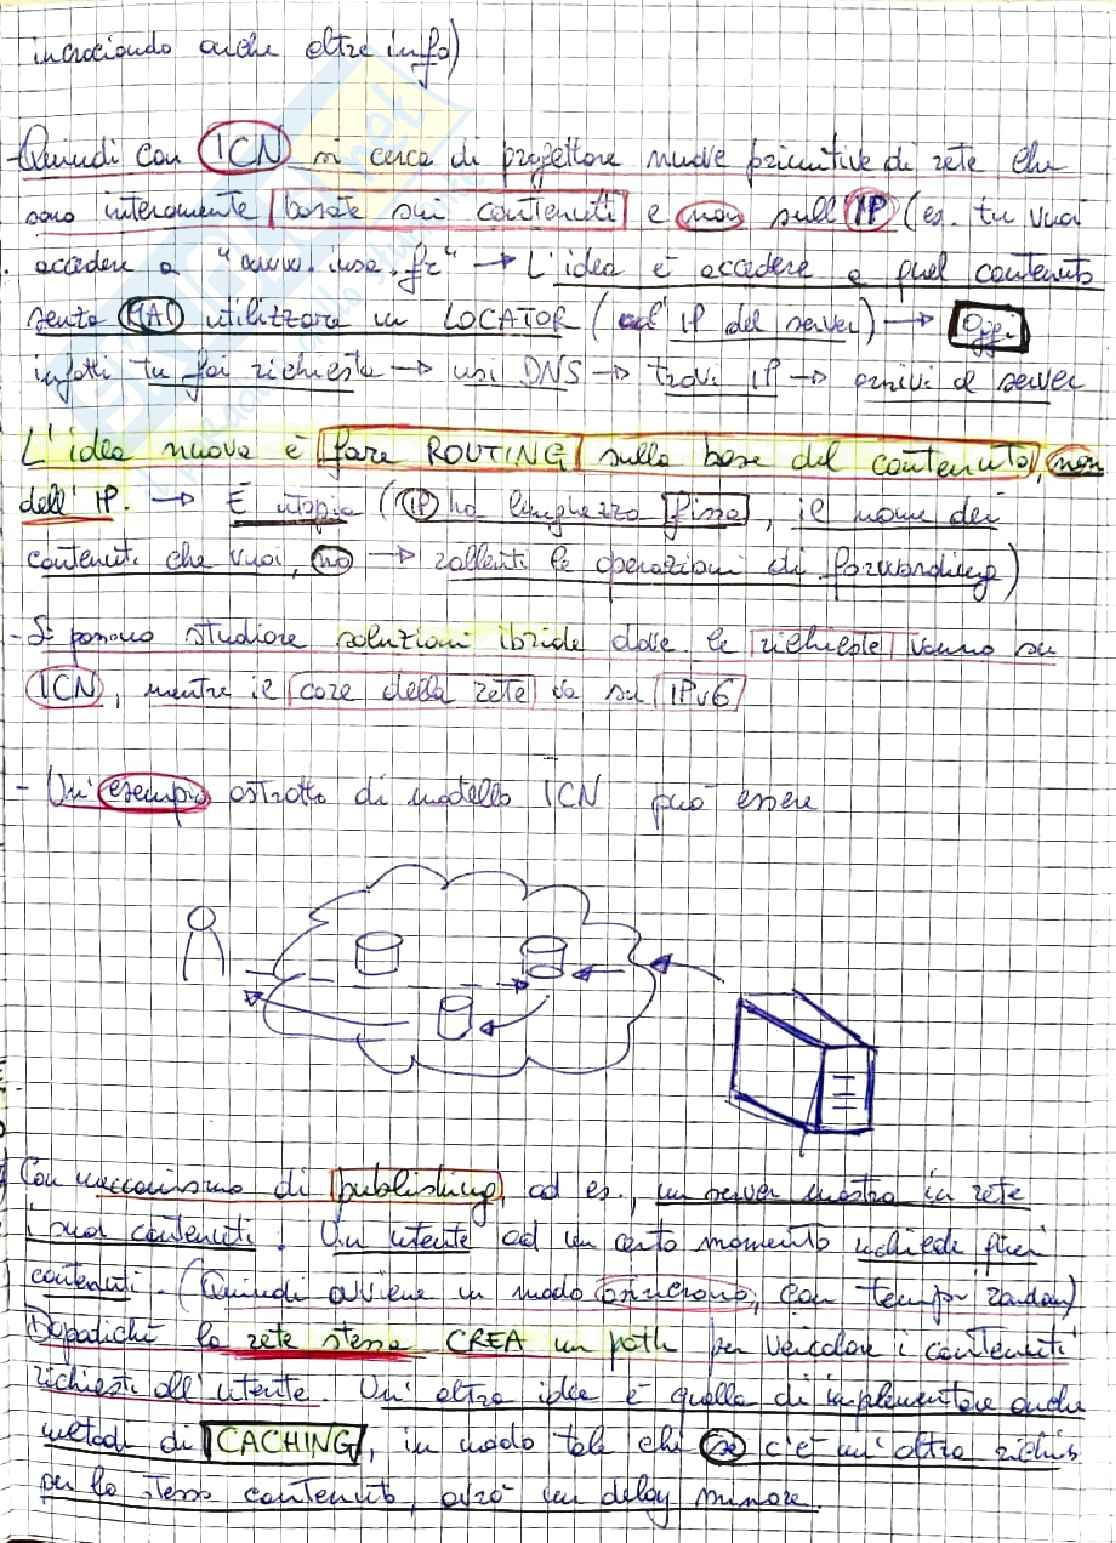 incrociando anche altre info)
- Quindi con ICN si cerca di progettare nuove primitive di rete che
sono interamente basate sui contenuti e non sull'IP (es. tu vuoi
accedere a "www.insa.fr" → L'idea è accedere a quel contenuto
senza MAI utilizzare un LOCATOR ( l'IP del server) → Oggi
infatti tu fai richiesta → usi DNS → trovi IP → arrivi al server
L'idea nuova è fare ROUTING sulla base del contenuto, non
dell'IP. → È utopia (IP ha lunghezza fissa, il nome dei
contenuti che vuoi, no → rallenti le operazioni di forwarding)
- Si possono studiare soluzioni ibride dove le richieste vanno su
ICN, mentre il core della rete va su IPv6
- Un'esempio astratto di modello ICN può essere
Con meccanismo di publishing, ad es., un server mostra in rete
i suoi contenuti. Un utente ad un certo momento richiede quei
contenuti. (Quindi avviene in modo asincrono, con tempi random)
Dopodiché la rete stessa CREA un path per veicolare i contenuti
richiesti all'utente. Un'altra idea è quella di implementare anche
metodi di CACHING, in modo tale che se c'è un'altra richies
per lo stesso contenuto, avrò un delay minore.